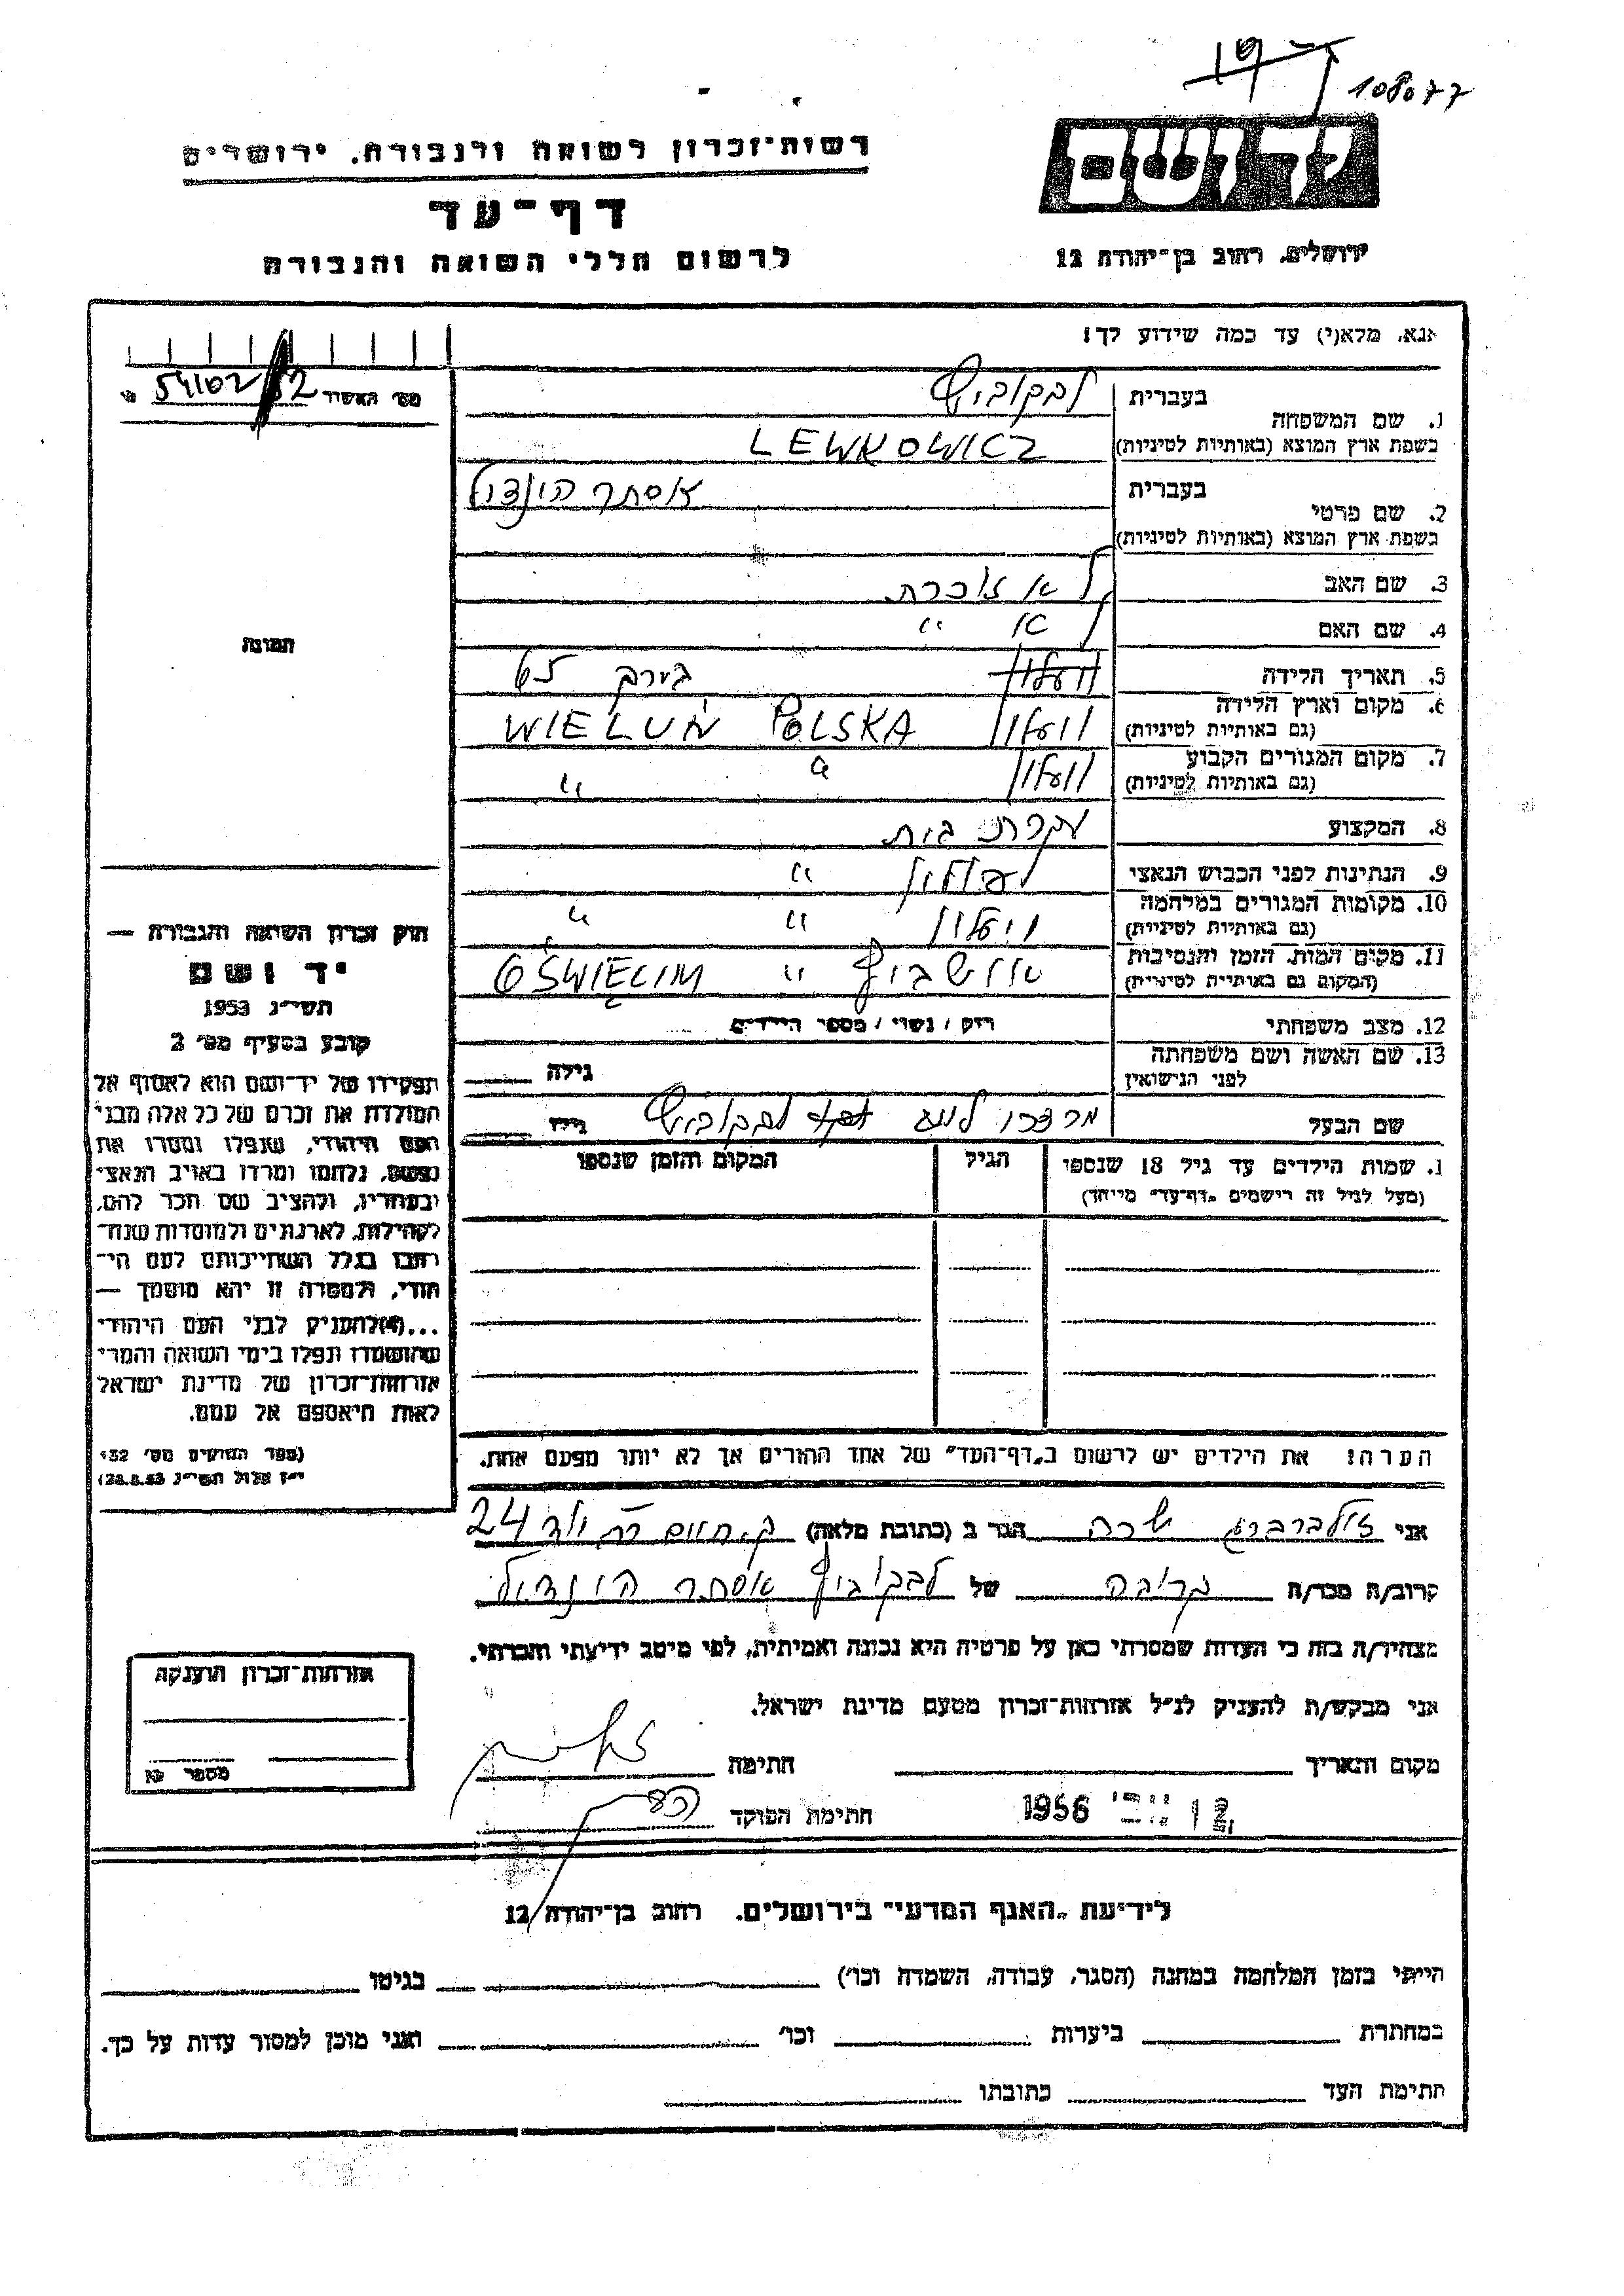 108077
יד ושם
רשות־זכרון לשואה ולגבורה, ירושלים
דף־עד
לרשום חללי השואה והגבורה
ירושלים, רחוב בן־יהודה 12
אנא, מלא(י) עד כמה שידוע לך!
מס׳ האשיר
54102
בעברית לבקוביץ
1. שם המשפחה
בשפת ארץ המוצא (באותיות לטיניות) LEWKOWICZ
בעברית אסתר הינדל
2. שם פרטי
בשפת ארץ המוצא (באותיות לטיניות)
3. שם האב לא זוכרת
4. שם האם לא "
5. תאריך הלידה בערך 65
6. מקום וארץ הלידה
(גם באותיות לטיניות) וועלון WIELUŃ POLSKA
7. מקום המגורים הקבוע
(גם באותיות לטיניות) וועלון " "
8. המקצוע עקרת בית
9. הנתינות לפני הכבוש הנאצי "
10. מקומות המגורים במלחמה
(גם באותיות לטיניות) וועלון " "
11. מקום המות, הזמן והנסיבות
(המקום גם באותיות לטיניות) אושביץ " OŚWIĘCIM
12. מצב משפחתי רוק / נשוי / מספר הילדים
13. שם האשה ושם משפחתה
לפני הנישואין גילה
שם הבעל מרדכי לבקוביץ גילו
תמונה
חוק זכרון השואה והגבורה —
יד ושם
תשי״ג 1953
קובע בסעיף מס׳ 2
תפקידו של יד־ושם הוא לאסוף אל
המולדת את זכרם של כל אלה מבני
העם היהודי, שנפלו ומסרו את
נפשם, נלחמו ומרדו באויב הנאצי
ובעוזריו, ולהציב שם וזכר להם,
לקהילות, לארגונים ולמוסדות שנח־
רבו בגלל השתייכותם לעם הי־
הודי, ולמטרה זו יהא מוסמך —
...(4) להעניק לבני העם היהודי
שהושמדו ונפלו בימי השואה והמרי
אזרחות־זכרון של מדינת ישראל
לאות היאספם אל עמם.
(ספר החוקים מס׳ 132
י״ז אלול תשי״ג 28.8.53)
1. שמות הילדים עד גיל 18 שנספו
(מעל לגיל זה רישמים „דף־עד” מייוחד)
הגיל
המקום והזמן שנספו
הערה! את הילדים יש לרשום ב„דף־העד” של אחד ההורים אך לא יותר מפעם אחת.
אני זילברברג שרה הגר ב (כתובת מלאה) ק. חיים 24
קרוב/ה מכר/ה קרובה של לבקוביץ אסתר הינדל
מצהיר/ה בזה כי העדות שמסרתי כאן על פרטיה היא נכונה ואמיתית, לפי מיטב ידיעתי והכרתי.
אני מבקש/ת להעניק לנ״ל אזרחות־זכרון מטעם מדינת ישראל.
אזרחות־זכרון הוענקה
מספר
מקום ותאריך
חתימה
1956
חתימת הפוקד
לידיעת „האגף המדעי” בירושלים. רחוב בן־יהודה 12
הייתי בזמן המלחמה במחנה (הסגר, עבודה, השמדה וכו׳) בגיטו
במחתרת ביערות וכו׳ ואני מוכן למסור עדות על כך.
חתימת העד כתובתו